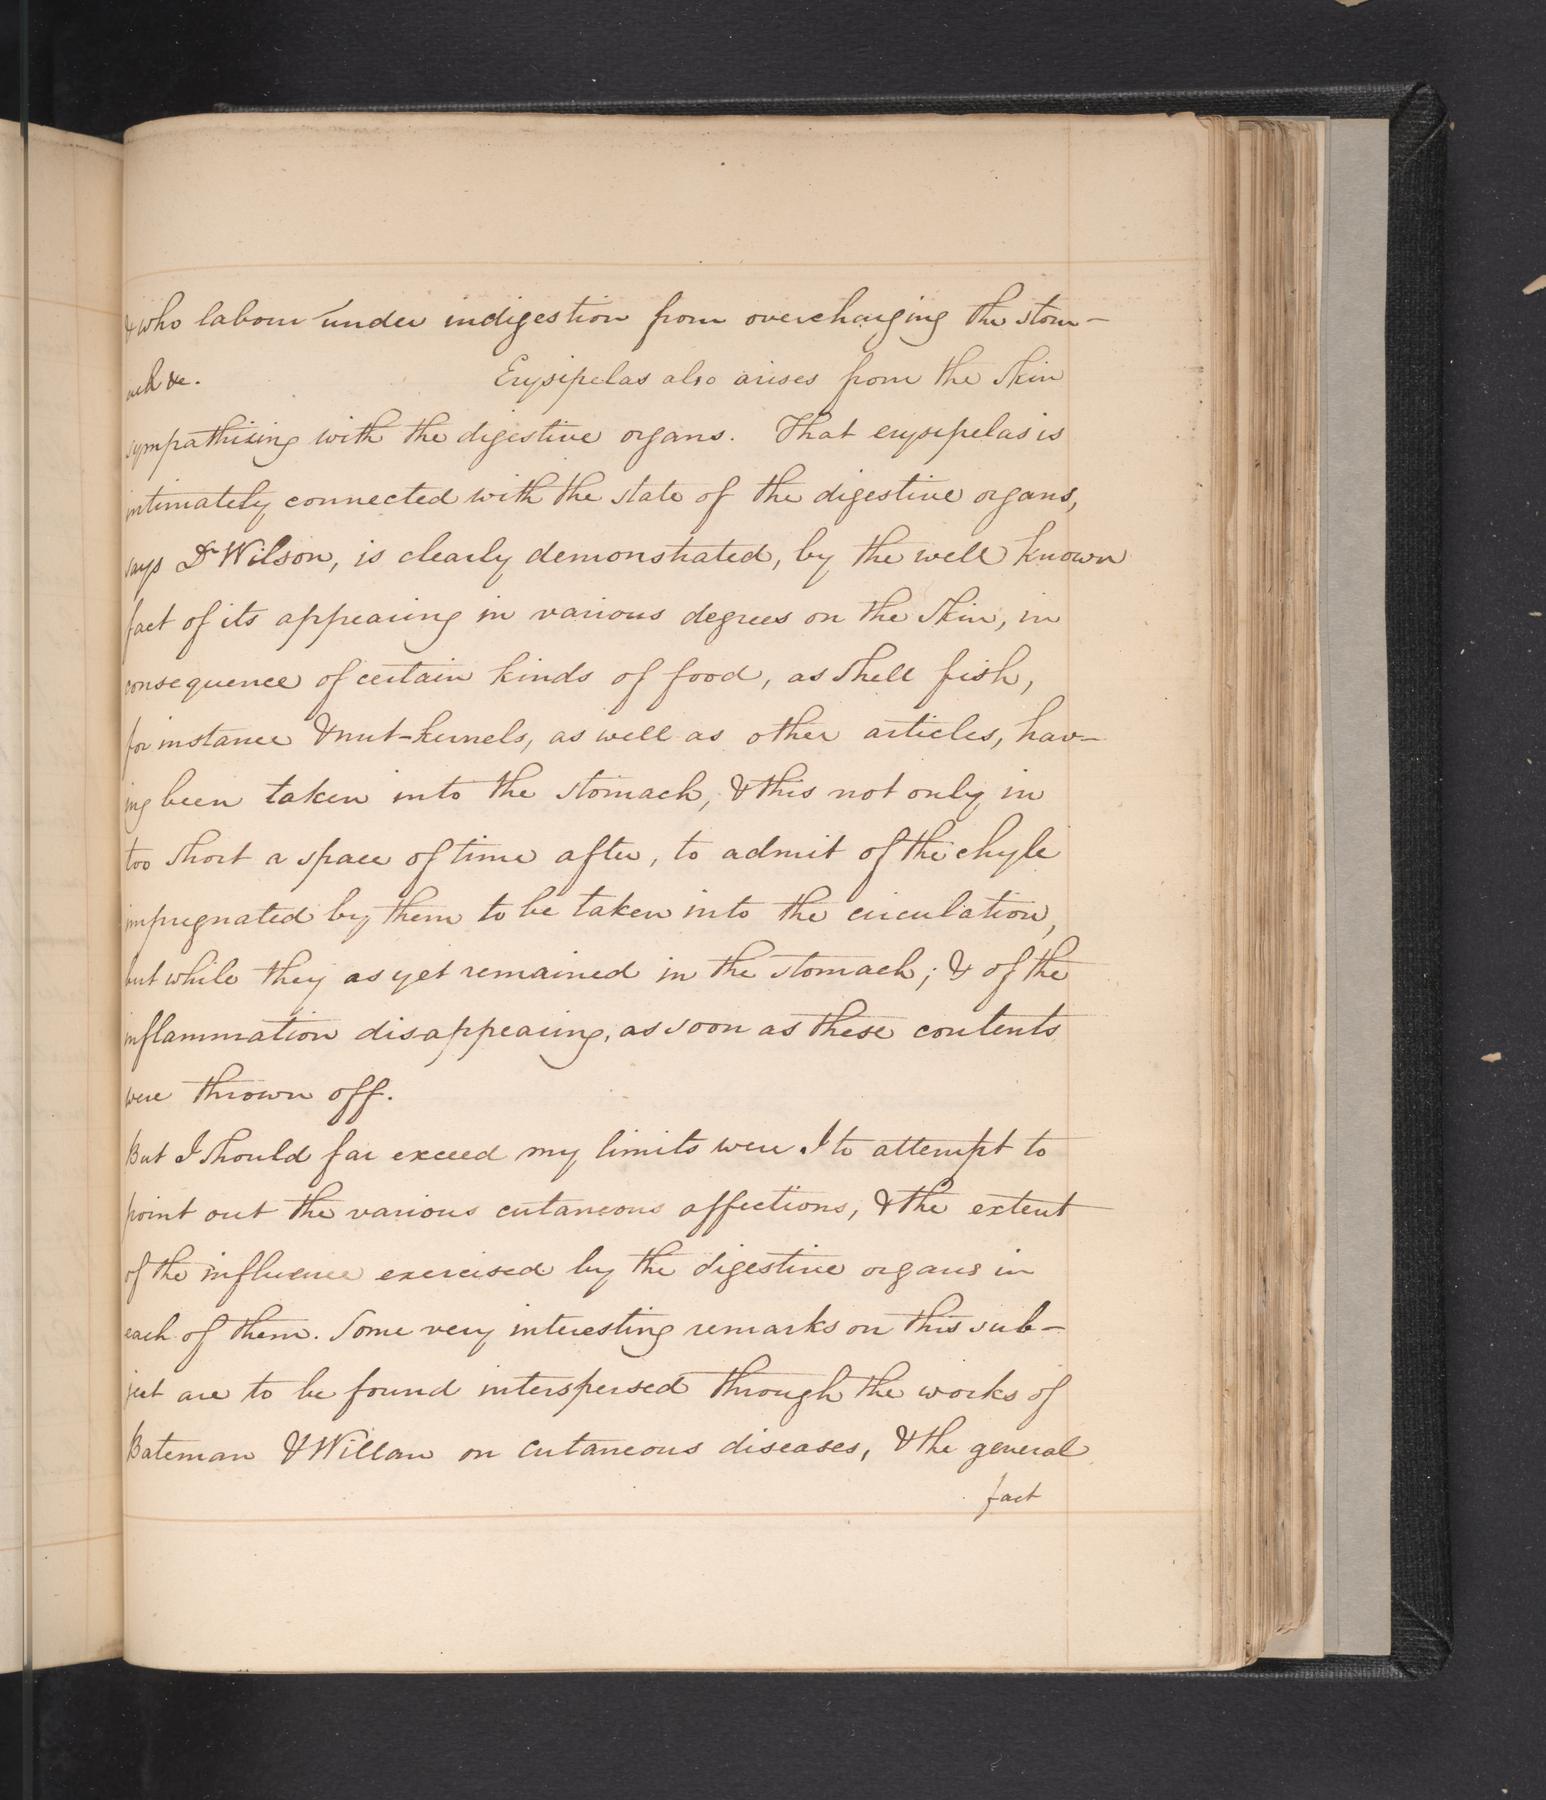 & who labour under indigestion from overcharging the stom-
ach &c. Erysipelas also arises from the skin
sympathising with the digestive organs. That erysipelas is
intimately connected with the state of the digestive organs,
says Dr Wilson, is clearly demonstrated, by the well known
fact of its appearing in various degrees on the skin, in
consequence of certain kinds of food, as shell fish,
for instance & nut-kernels, as well as other articles, hav-
ing been taken into the stomach, & this not only in
too short a space of time after, to admit of the chyle
impregnated by them to be taken into the circulation,
but while they as yet remained in the stomach; & of the
inflammation disappearing, as soon as these contents
were thrown off.
But I should far exceed my limits were I to attempt to
point out the various cutaneous affections, & the extent
of the influence exercised by the digestive organs in
each of them. Some very interesting remarks on this sub-
ject are to be found interspersed through the works of
Bateman & Willan on cutaneous diseases, & the general
fact